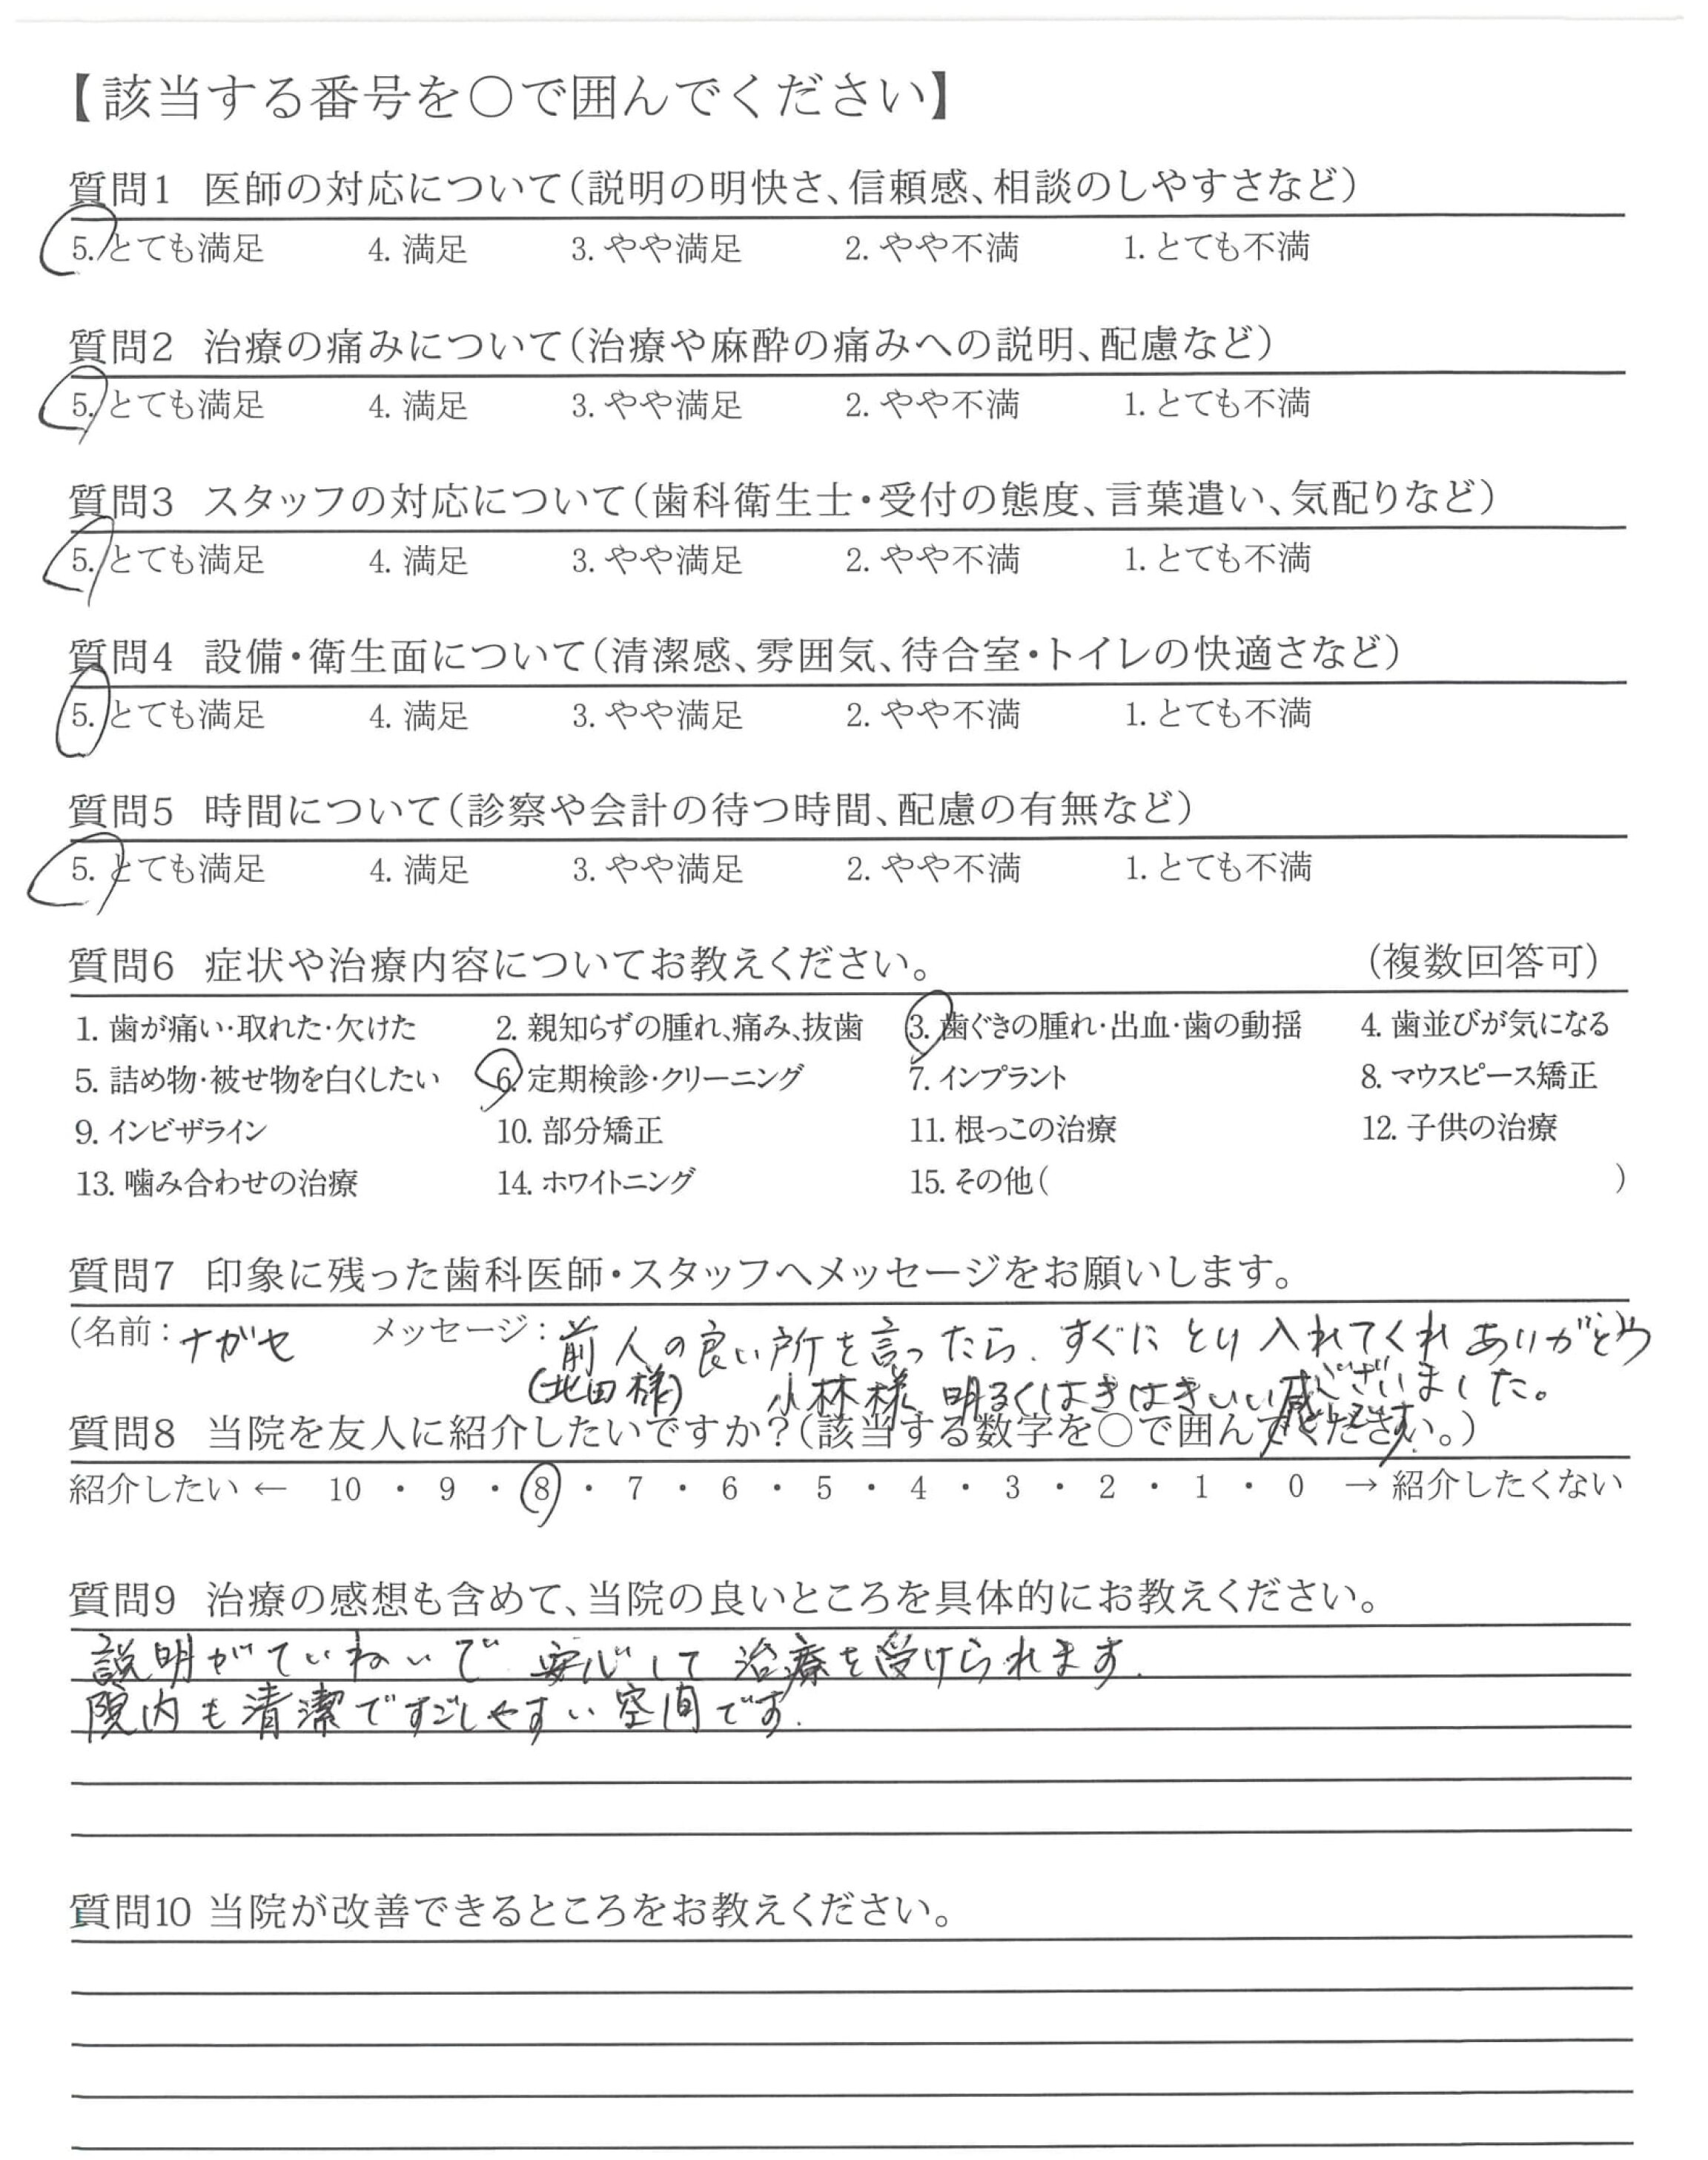 【該当する番号を〇で囲んでください】
質問1 医師の対応について（説明の明快さ、信頼感、相談のしやすさなど）
5. とても満足 4. 満足 3. やや満足 2. やや不満 1. とても不満
質問2 治療の痛みについて（治療や麻酔の痛みへの説明、配慮など）
5. とても満足 4. 満足 3. やや満足 2. やや不満 1. とても不満
質問3 スタッフの対応について（歯科衛生士・受付の態度、言葉遣い、気配りなど）
5. とても満足 4. 満足 3. やや満足 2. やや不満 1. とても不満
質問4 設備・衛生面について（清潔感、雰囲気、待合室・トイレの快適さなど）
5. とても満足 4. 満足 3. やや満足 2. やや不満 1. とても不満
質問5 時間について（診察や会計の待つ時間、配慮の有無など）
5. とても満足 4. 満足 3. やや満足 2. やや不満 1. とても不満
質問6 症状や治療内容についてお教えください。 （複数回答可）
1. 歯が痛い・取れた・欠けた 2. 親知らずの腫れ、痛み、抜歯 3. 歯ぐきの腫れ・出血・歯の動揺 4. 歯並びが気になる
5. 詰め物・被せ物を白くしたい 6. 定期検診・クリーニング 7. インプラント 8. マウスピース矯正
9. インビザライン 10. 部分矯正 11. 根っこの治療 12. 子供の治療
13. 噛み合わせの治療 14. ホワイトニング 15. その他（ ）
質問7 印象に残った歯科医師・スタッフへメッセージをお願いします。
（名前：ナガセ メッセージ：前人の良い所を言ったら、すぐにとり入れてくれありがとう
ございました。
（北田様） 小林様 明るくはきはきいい感じです
質問8 当院を友人に紹介したいですか？（該当する数字を〇で囲んでください。）
紹介したい ← 10 ・ 9 ・ 8 ・ 7 ・ 6 ・ 5 ・ 4 ・ 3 ・ 2 ・ 1 ・ 0 → 紹介したくない
質問9 治療の感想も含めて、当院の良いところを具体的にお教えください。
説明がていねいで 安心して 治療を受けられます.
院内も清潔ですごしやすい空間です.
質問10 当院が改善できるところをお教えください。